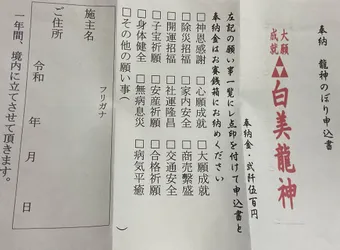 奉納 龍神のぼり申込書
大願
成就
白美龍神
奉納金・弐阡伍百円
左記の願い事一覧にレ点印を付けて申込書と
奉納金はお賽銭箱にお納めください
□神恩感謝 □心願成就 □大願成就
□除災招福 □家内安全 □商売繁盛
□開運招福 □社運隆昌 □交通安全
□子宝祈願 □安産祈願 □合格祈願
□身体健全 □無病息災 □病気平癒
□その他の願い事（ ）
フリガナ
施主名
ご住所
令和 年 月 日
一年間、境内に立てさせて頂きます。